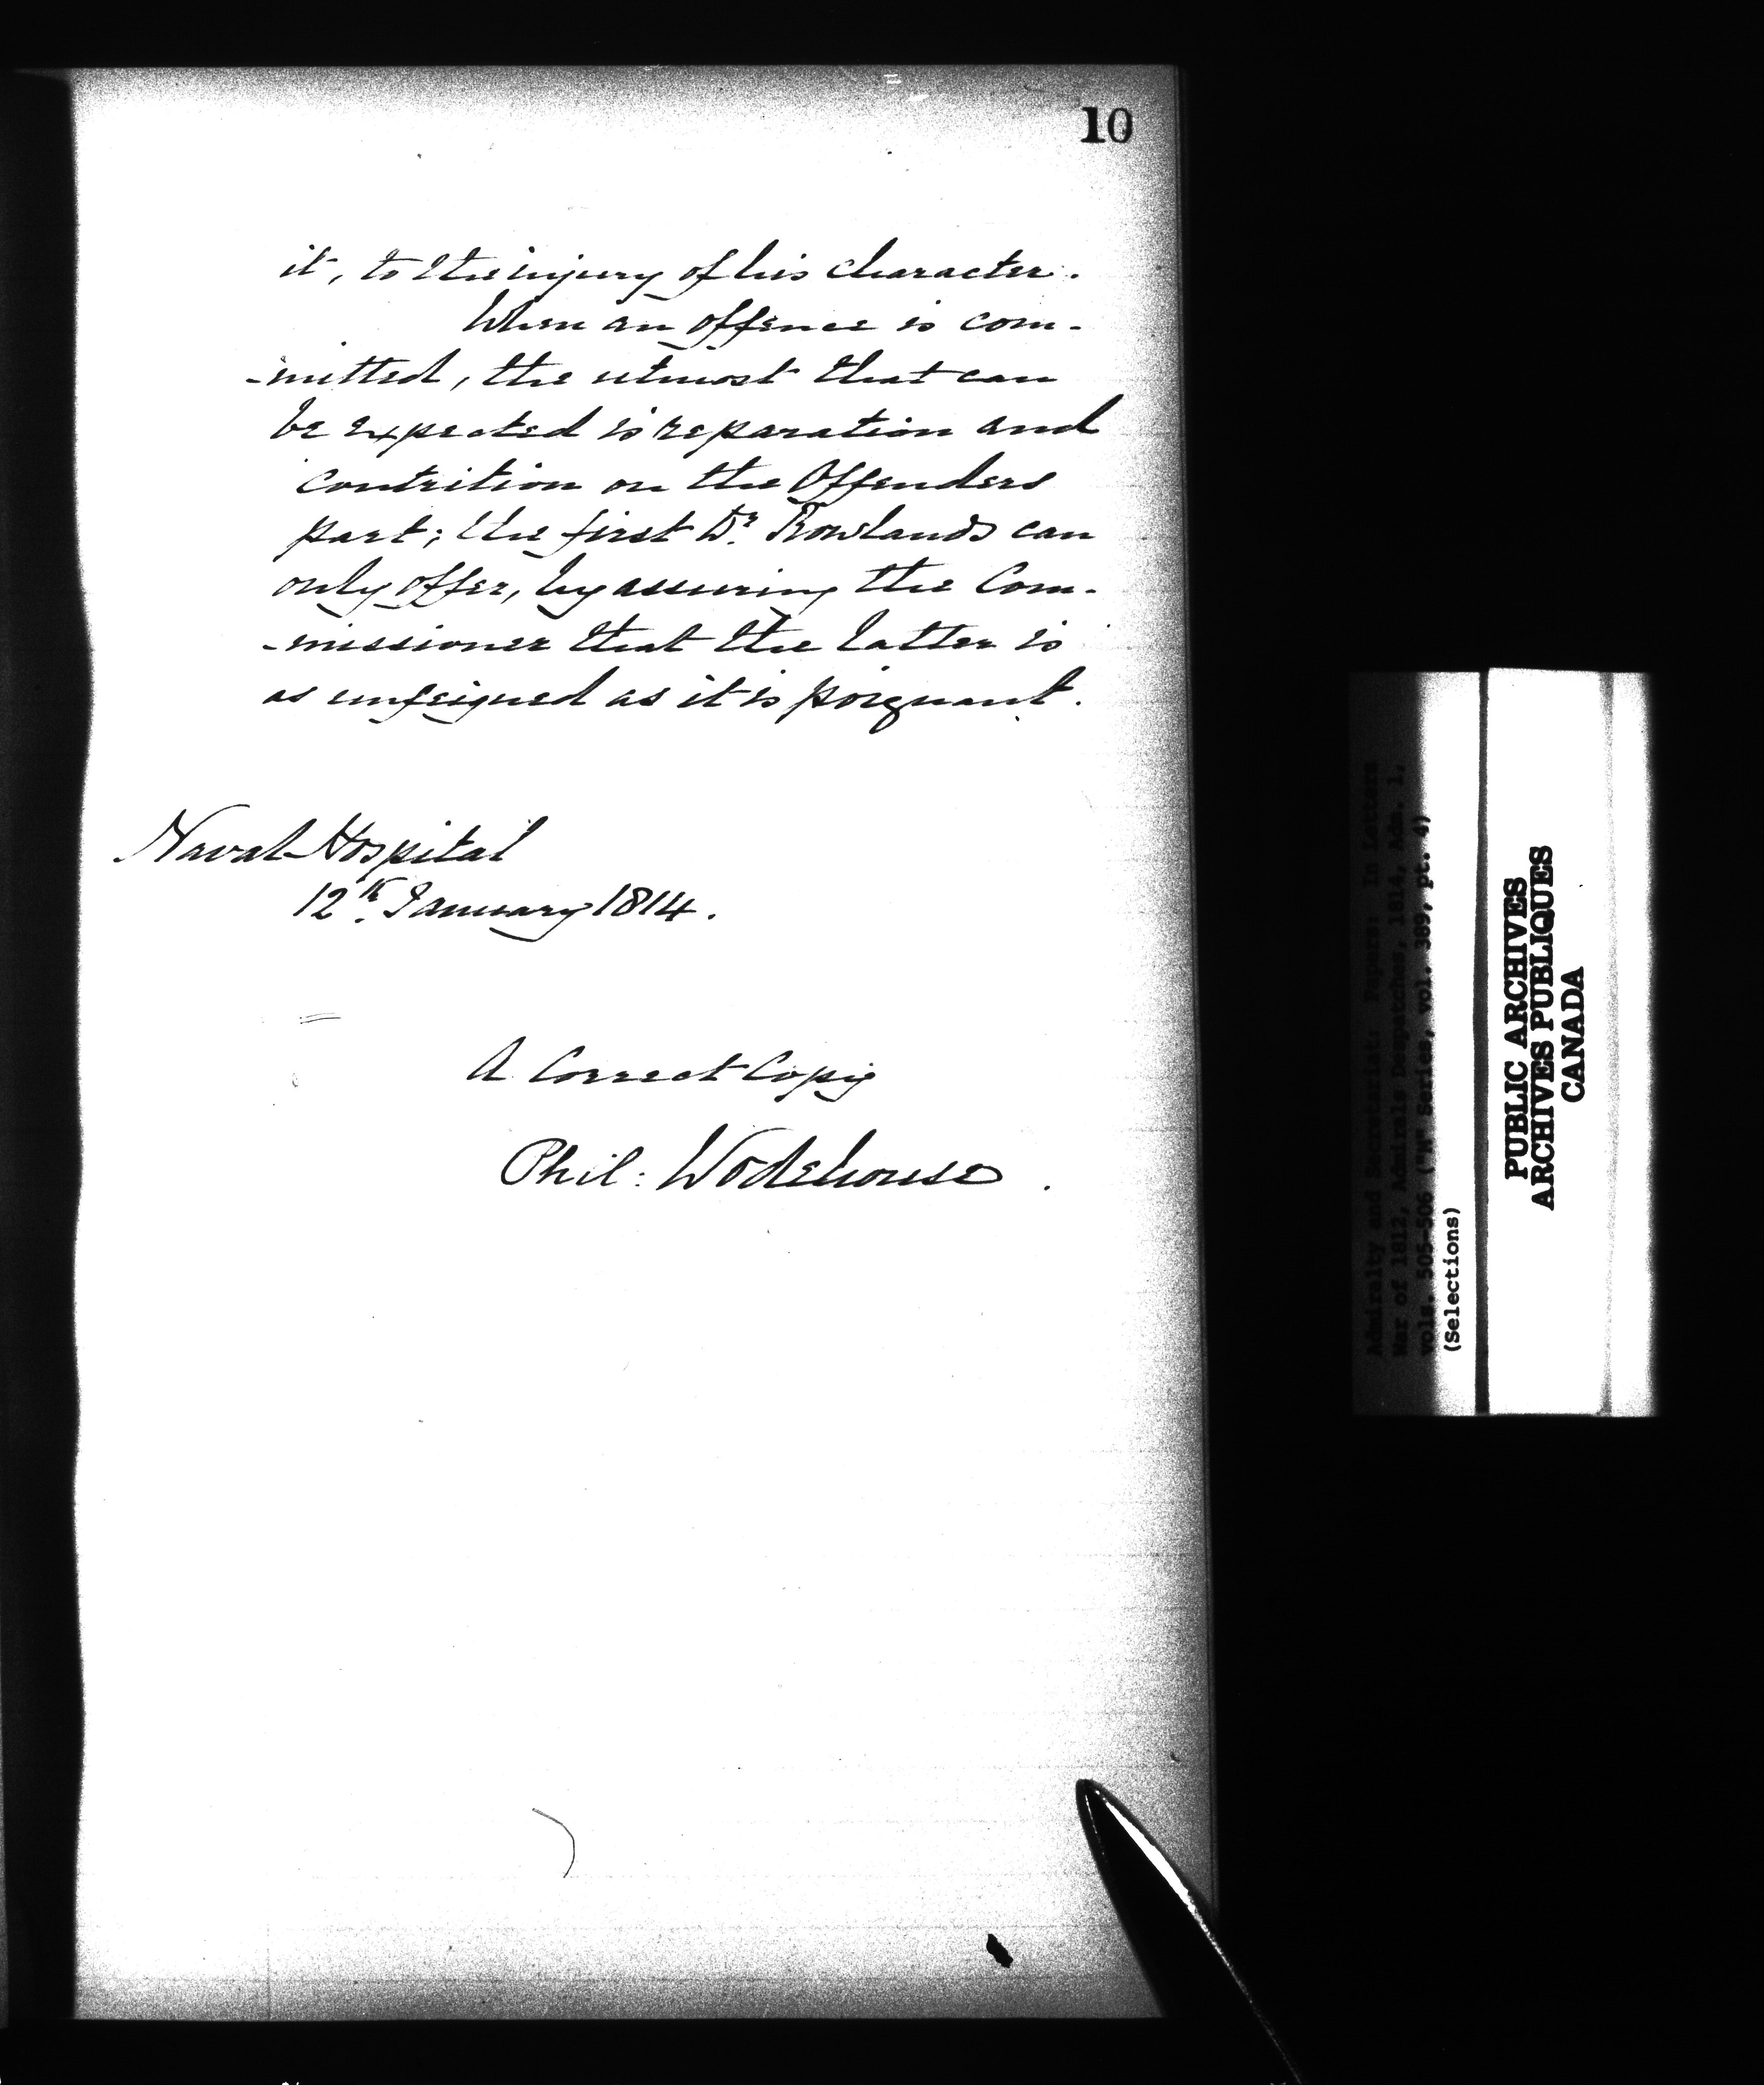 10
it, to the injury of his character.
When an offence is com-
-mitted, the utmost that can
be expected is reparation and
contrition on the Offenders
part; the first Dr. Rowlands can
only offer, by assuring the Com-
-missioner that the latter is
as unfeigned as it is poignant.
Naval Hospital
12th January 1814.
A Correct Copy
Phil: Wodehouse.
Admiralty and Secretariat: Papers: In Letters
War of 1812, Admirals Despatches, 1814, Adm. 1,
vols. 505-506 ("M" Series, vol. 389, pt. 4)
(Selections)
PUBLIC ARCHIVES
ARCHIVES PUBLIQUES
CANADA